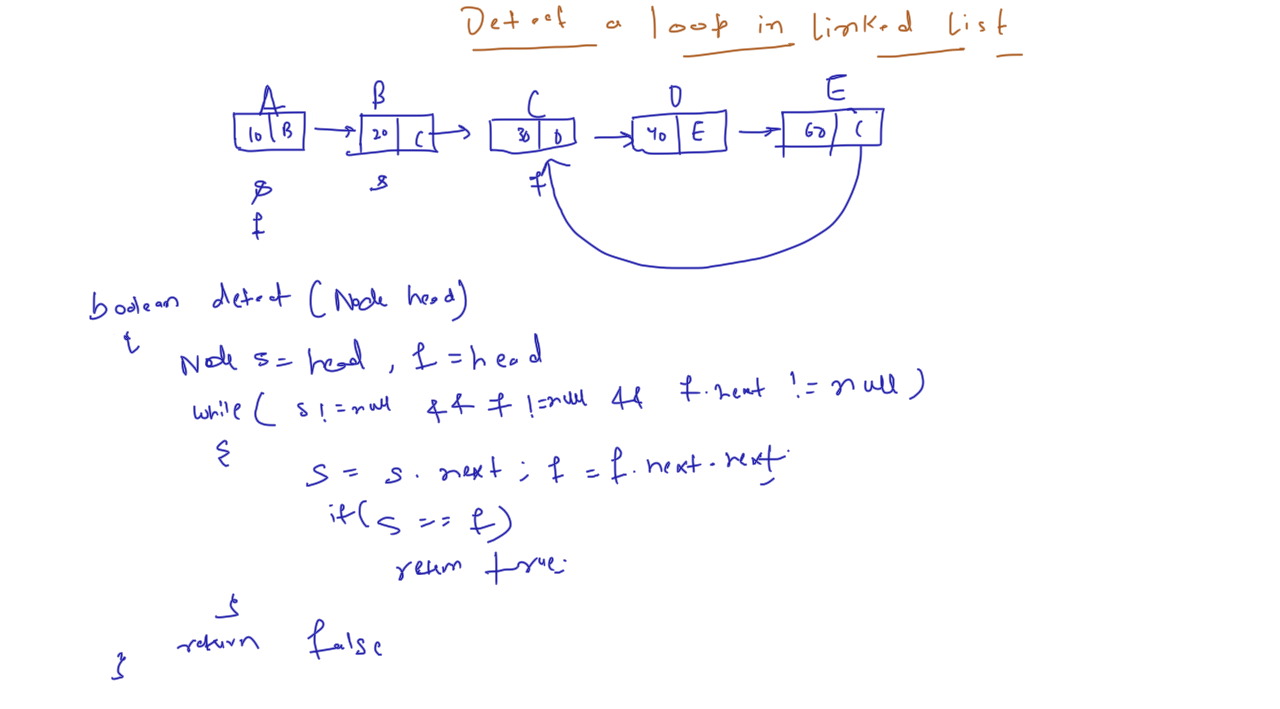 Detect a loop in linked list
A B C D E
10 B 20 C 30 D 40 E 60 C
s s f
f
boolean detect (Node head)
{
Node s = head , f = head
while ( s != null && f != null && f.next != null )
{
s = s.next ; f = f.next.next;
if(s == f)
return true;
}
return false
}